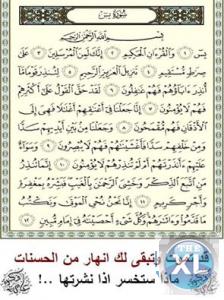 سورة يس
بسم الله الرحمن الرحيم
يس ١ والقرءان الحكيم ٢ إنك لمن المرسلين ٣ على
صراط مستقيم ٤ تنزيل العزيز الرحيم ٥ لتنذر قوما ما
أنذر ءاباؤهم فهم غافلون ٦ لقد حق القول على أكثرهم
فهم لا يؤمنون ٧ إنا جعلنا في أعناقهم أغلالا فهي إلى
الأذقان فهم مقمحون ٨ وجعلنا من بين أيديهم سدا
ومن خلفهم سدا فأغشيناهم فهم لا يبصرون ٩ وسواء
عليهم ءأنذرتهم أم لم تنذرهم لا يؤمنون ١٠ إنما تنذر
من اتبع الذكر وخشي الرحمن بالغيب فبشره بمغفرة
وأجر كريم ١١ إنا نحن نحي الموتى ونكتب
ما قدموا وءاثارهم وكل شيء أحصيناه في إمام مبين ١٢
قد تموت وتبقى لك انهار من الحسنات
ماذا ستخسر اذا نشرتها ..!
THE